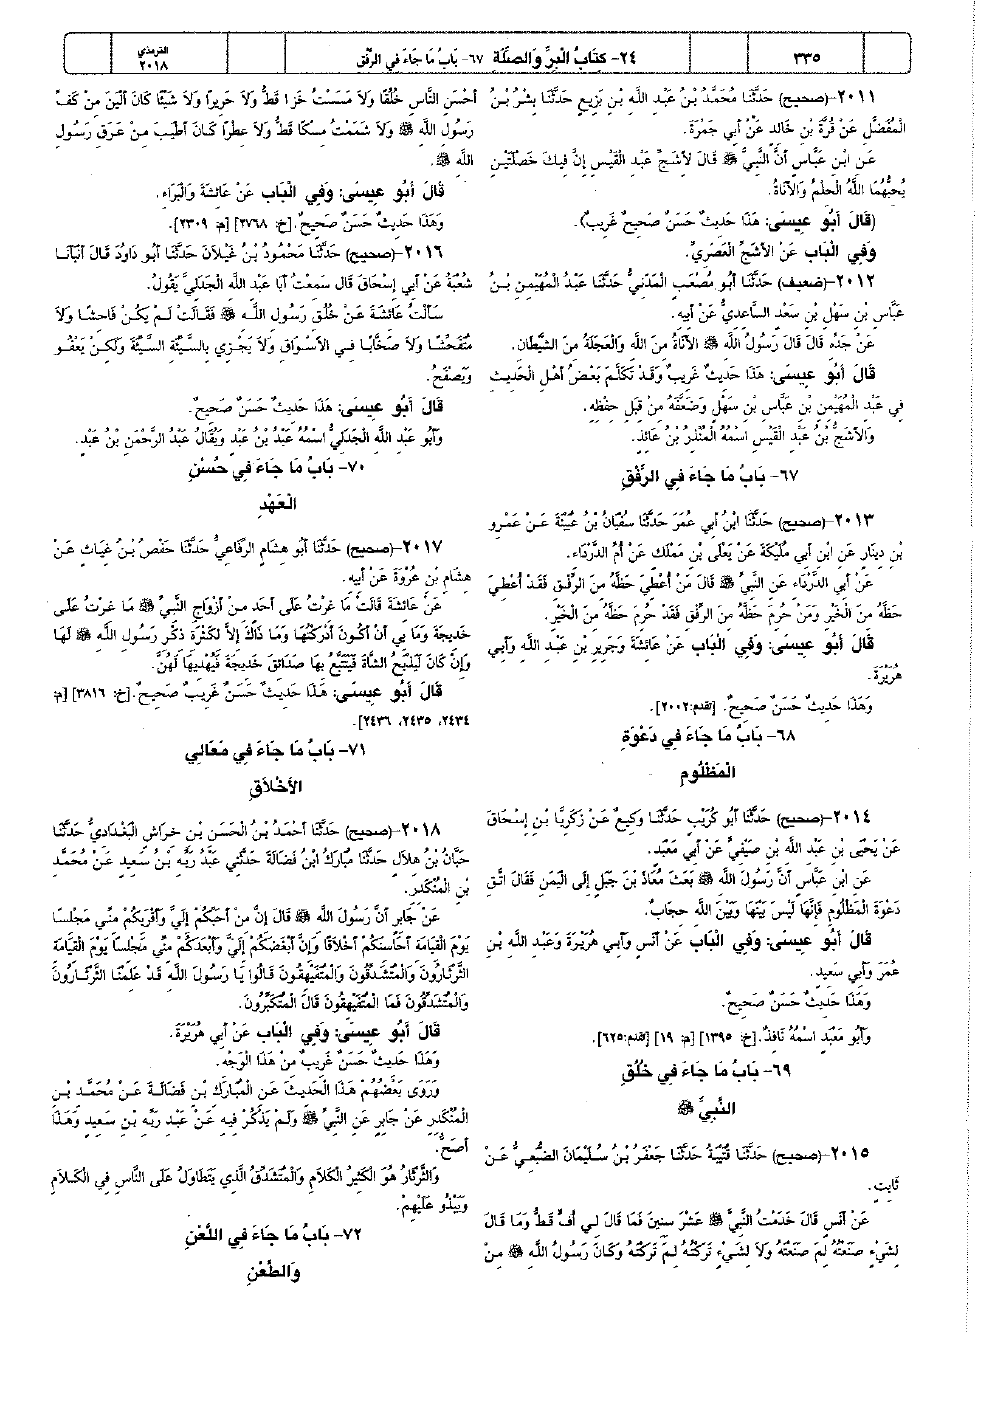 ٣٣٥
٢٤- كتَابُ الْبِرِّ وَالصِّلَة ٦٧- بَابُ مَا جَاءَ في الرِّفْق
الترمذي
٢٠١٨
٢٠١١-(صحيح) حَدَّثَنَا مُحَمَّدُ بْنُ عَبْد اللَّه بْنِ بَزِيعٍ حَدَّثَنَا بِشْرُ بْنُ
الْمُفَضَّلِ عَنْ قُرَّةَ بْنِ خَالد عَنْ أَبِي جَمْرَةَ.
عَنِ ابْنِ عَبَّاسٍ أَنَّ النَّبِيَّ ﷺ قَالَ لأَشَجِّ عَبْد الْقَيْسِ إِنَّ فِيكَ خَصْلَتَيْنِ
يُحِبُّهُمَا اللَّهُ الْحلْمُ وَالأَنَاةُ.
(قَالَ أَبُو عِيسَى: هَذَا حَديثٌ حَسَنٌ صَحِيحٌ غَرِيبٌ).
وَفِي الْبَاب عَنْ الأَشَجِّ الْعَصَرِيِّ.
٢٠١٢-(ضعيف) حَدَّثَنَا أَبُو مُصْعَب الْمَدَنِيُّ حَدَّثَنَا عَبْدُ الْمُهَيْمِنِ بْنُ
عَبَّاسِ بْنِ سَهْلِ بْنِ سَعْد السَّاعِديُّ عَنْ أَبيه.
عَنْ جَدِّه قَالَ قَالَ رَسُولُ اللَّه ﷺ الأَنَاةُ مِنَ اللَّه وَالْعَجَلَةُ مِنَ الشَّيْطَان.
قَالَ أَبُو عِيسَى: هَذَا حَديثٌ غَرِيبٌ وَقَدْ تَكَلَّمَ بَعْضُ أَهْلِ الْحَديث
فِي عَبْد الْمُهَيْمِنِ بْنِ عَبَّاسِ بْنِ سَهْلٍ وَضَعَّفَهُ مِنْ قِبَلِ حِفْظِه.
وَالأَشَجُّ بْنُ عَبْد الْقَيْسِ اسْمُهُ الْمُنْذِرُ بْنُ عَائِذ.
٦٧- بَابُ مَا جَاءَ في الرِّفْقِ
٢٠١٣-(صحيح) حَدَّثَنَا ابْنُ أَبِي عُمَرَ حَدَّثَنَا سُفْيَانُ بْنُ عُيَيْنَةَ عَنْ عَمْرِو
بْنِ دينَار عَنِ ابْنِ أَبِي مُلَيْكَةَ عَنْ يَعْلَى بْنِ مَمْلَك عَنْ أُمِّ الدَّرْدَاء.
عَنْ أَبِي الدَّرْدَاء عَنِ النَّبِيِّ ﷺ قَالَ مَنْ أُعْطِيَ حَظَّهُ مِنَ الرِّفْقِ فَقَدْ أُعْطِيَ
حَظَّهُ مِنَ الْخَيْرِ وَمَنْ حُرِمَ حَظَّهُ مِنَ الرِّفْقِ فَقَدْ حُرِمَ حَظَّهُ مِنَ الْخَيْرِ.
قَالَ أَبُو عِيسَى: وَفِي الْبَاب عَنْ عَائِشَةَ وَجَرِيرِ بْنِ عَبْد اللَّه وَأَبِي
هُرَيْرَةَ.
وَهَذَا حَديثٌ حَسَنٌ صَحِيحٌ. [تقدم: ٢٠٠٢].
٦٨- بَابُ مَا جَاءَ في دَعْوَة
الْمَظْلُومِ
٢٠١٤-(صحيح) حَدَّثَنَا أَبُو كُرَيْب حَدَّثَنَا وَكِيعٌ عَنْ زَكَرِيَّا بْنِ إِسْحَاقَ
عَنْ يَحْيَى بْنِ عَبْد اللَّه بْنِ صَيْفِيٍّ عَنْ أَبِي مَعْبَد.
عَنِ ابْنِ عَبَّاسٍ أَنَّ رَسُولَ اللَّه ﷺ بَعَثَ مُعَاذَ بْنَ جَبَلٍ إِلَى الْيَمَنِ فَقَالَ اتَّقِ
دَعْوَةَ الْمَظْلُومِ فَإِنَّهَا لَيْسَ بَيْنَهَا وَبَيْنَ اللَّه حِجَابٌ.
قَالَ أَبُو عِيسَى: وَفِي الْبَاب عَنْ أَنَسٍ وَأَبِي هُرَيْرَةَ وَعَبْد اللَّه بْنِ
عُمَرَ وَأَبِي سَعِيد.
وَهَذَا حَديثٌ حَسَنٌ صَحِيحٌ.
وَأَبُو مَعْبَد اسْمُهُ نَافِذٌ. [خ: ١٣٩٥] [م: ١٩] [تقدم: ٦٢٥].
٦٩- بَابُ مَا جَاءَ في خُلُقِ
النَّبِيِّ ﷺ
٢٠١٥-(صحيح) حَدَّثَنَا قُتَيْبَةُ حَدَّثَنَا جَعْفَرُ بْنُ سُلَيْمَانَ الضُّبَعِيُّ عَنْ
ثَابِت.
عَنْ أَنَسٍ قَالَ خَدَمْتُ النَّبِيَّ ﷺ عَشْرَ سِنِينَ فَمَا قَالَ لِي أُفٍّ قَطُّ وَمَا قَالَ
لِشَيْءٍ صَنَعْتُهُ لِمَ صَنَعْتَهُ وَلاَ لِشَيْءٍ تَرَكْتُهُ لِمَ تَرَكْتَهُ وَكَانَ رَسُولُ اللَّه ﷺ مِنْ
أَحْسَنِ النَّاسِ خُلُقًا وَلاَ مَسَسْتُ خَزا قَطُّ وَلاَ حَرِيرًا وَلاَ شَيْئًا كَانَ أَلْيَنَ مِنْ كَفِّ
رَسُولِ اللَّه ﷺ وَلاَ شَمَمْتُ مِسْكًا قَطُّ وَلاَ عِطْرًا كَانَ أَطْيَبَ مِنْ عَرَقِ رَسُولِ
اللَّه ﷺ.
قَالَ أَبُو عِيسَى: وَفِي الْبَاب عَنْ عَائِشَةَ وَالْبَرَاء.
وَهَذَا حَديثٌ حَسَنٌ صَحِيحٌ. [خ: ٢٧٦٨] [م: ٢٣٠٩].
٢٠١٦-(صحيح) حَدَّثَنَا مَحْمُودُ بْنُ غَيْلاَنَ حَدَّثَنَا أَبُو دَاوُدَ قَالَ أَنْبَأَنَا
شُعْبَةُ عَنْ أَبِي إِسْحَاقَ قَال سَمِعْتُ أَبَا عَبْد اللَّه الْجَدَلِيَّ يَقُولُ.
سَأَلْتُ عَائِشَةَ عَنْ خُلُقِ رَسُولِ اللَّه ﷺ فَقَالَتْ لَمْ يَكُنْ فَاحِشًا وَلاَ
مُتَفَحِّشًا وَلاَ صَخَّابًا فِي الأَسْوَاقِ وَلاَ يَجْزِي بِالسَّيِّئَة السَّيِّئَةَ وَلَكِنْ يَعْفُو
وَيَصْفَحُ.
قَالَ أَبُو عِيسَى: هَذَا حَديثٌ حَسَنٌ صَحِيحٌ.
وَأَبُو عَبْد اللَّه الْجَدَلِيُّ اسْمُهُ عَبْدُ بْنُ عَبْد وَيُقَالُ عَبْدُ الرَّحْمَنِ بْنُ عَبْد.
٧٠- بَابُ مَا جَاءَ في حُسْنِ
الْعَهْدِ
٢٠١٧-(صحيح) حَدَّثَنَا أَبُو هِشَامٍ الرِّفَاعِيُّ حَدَّثَنَا حَفْصُ بْنُ غِيَاث عَنْ
هِشَامِ بْنِ عُرْوَةَ عَنْ أَبِيه.
عَنْ عَائِشَةَ قَالَتْ مَا غِرْتُ عَلَى أَحَد مِنْ أَزْوَاجِ النَّبِيِّ ﷺ مَا غِرْتُ عَلَى
خَديجَةَ وَمَا بِي أَنْ أَكُونَ أَدْرَكْتُهَا وَمَا ذَاكَ إِلاَّ لِكَثْرَة ذِكْرِ رَسُولِ اللَّه ﷺ لَهَا
وَإِنْ كَانَ لَيَذْبَحُ الشَّاةَ فَيَتَتَبَّعُ بِهَا صَدَائِقَ خَديجَةَ فَيُهْديهَا لَهُنَّ.
قَالَ أَبُو عِيسَى: هَذَا حَديثٌ حَسَنٌ غَرِيبٌ صَحِيحٌ. [خ: ٣٨١٦] [م:
٢٤٣٤، ٢٤٣٥، ٢٤٣٦].
٧١- بَابُ مَا جَاءَ في مَعَالي
الأَخْلاَقِ
٢٠١٨-(صحيح) حَدَّثَنَا أَحْمَدُ بْنُ الْحَسَنِ بْنِ خِرَاشٍ الْبَغْدَاديُّ حَدَّثَنَا
حَبَّانُ بْنُ هِلاَلٍ حَدَّثَنَا مُبَارَكُ ابْنُ فَضَالَةَ حَدَّثَنِي عَبْدُ رَبِّه بْنُ سَعِيد عَنْ مُحَمَّد
بْنِ الْمُنْكَدِرِ.
عَنْ جَابِرٍ أَنَّ رَسُولَ اللَّه ﷺ قَالَ إِنَّ مِنْ أَحَبِّكُمْ إِلَيَّ وَأَقْرَبِكُمْ مِنِّي مَجْلِسًا
يَوْمَ الْقِيَامَة أَحَاسِنَكُمْ أَخْلاَقًا وَإِنَّ أَبْغَضَكُمْ إِلَيَّ وَأَبْعَدَكُمْ مِنِّي مَجْلِسًا يَوْمَ الْقِيَامَة
الثَّرْثَارُونَ وَالْمُتَشَدِّقُونَ وَالْمُتَفَيْهِقُونَ قَالُوا يَا رَسُولَ اللَّه قَدْ عَلِمْنَا الثَّرْثَارُونَ
وَالْمُتَشَدِّقُونَ فَمَا الْمُتَفَيْهِقُونَ قَالَ الْمُتَكَبِّرُونَ.
قَالَ أَبُو عِيسَى: وَفِي الْبَاب عَنْ أَبِي هُرَيْرَةَ.
وَهَذَا حَديثٌ حَسَنٌ غَرِيبٌ مِنْ هَذَا الْوَجْه.
وَرَوَى بَعْضُهُمْ هَذَا الْحَديثَ عَنِ الْمُبَارَكِ بْنِ فَضَالَةَ عَنْ مُحَمَّد بْنِ
الْمُنْكَدِرِ عَنْ جَابِرٍ عَنِ النَّبِيِّ ﷺ وَلَمْ يَذْكُرْ فِيه عَنْ عَبْد رَبِّه بْنِ سَعِيد وَهَذَا
أَصَحُّ.
وَالثَّرْثَارُ هُوَ الْكَثِيرُ الْكَلاَمِ وَالْمُتَشَدِّقُ الَّذي يَتَطَاوَلُ عَلَى النَّاسِ فِي الْكَلاَمِ
وَيَبْذُو عَلَيْهِمْ.
٧٢- بَابُ مَا جَاءَ في اللَّعْنِ
وَالطَّعْنِ